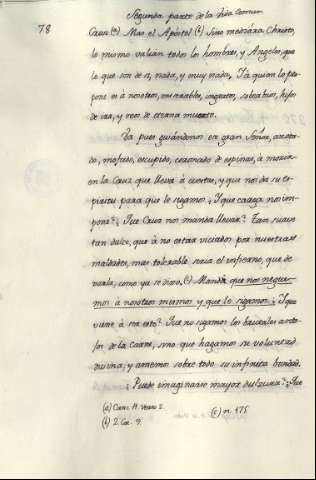 78
Segunda parte de la Vida Comun
Cruz (a) Mas el Apóstol (b) Sino mediára Christo,
lo mismo valian todos los hombres, y Angeles, que
lo que son de si, nada, y muy nada, Y à quien lo
es à nosotros, miserables, ingratos, soberbios, hijos
de ira, y reos de eterna muerte.
Va pues guiándonos un gran Señor, azota-
do, mofado, escupido, coronado de espinas, à morir
en la Cruz que lleva à cuestas, y que nos da su es-
piritu para que le sigamos. ¿Y que carga nos im-
pone? ¿Que Cruz nos manda llevar? Tan suave
tan dulce, que à no estar viciados por nuestras
maldades, mas tolerable sería el infierno, que de-
xarla, como ya se dixo. (c) Manda que nos negue-
mos à nosotros mismos y que lo sigamos: ¿Y que
viene à ser esto? Que no sigamos los brutales anto-
jos de la Carne, sino que hagamos su voluntad
divina, y amemos sobre todo su infinita bondad.
¿Puede imaginarse mayor dulzura? ¿Que
(a) Cant. 11. Verso 2.
(b) 2. Cor. 9.
(c) n. 175